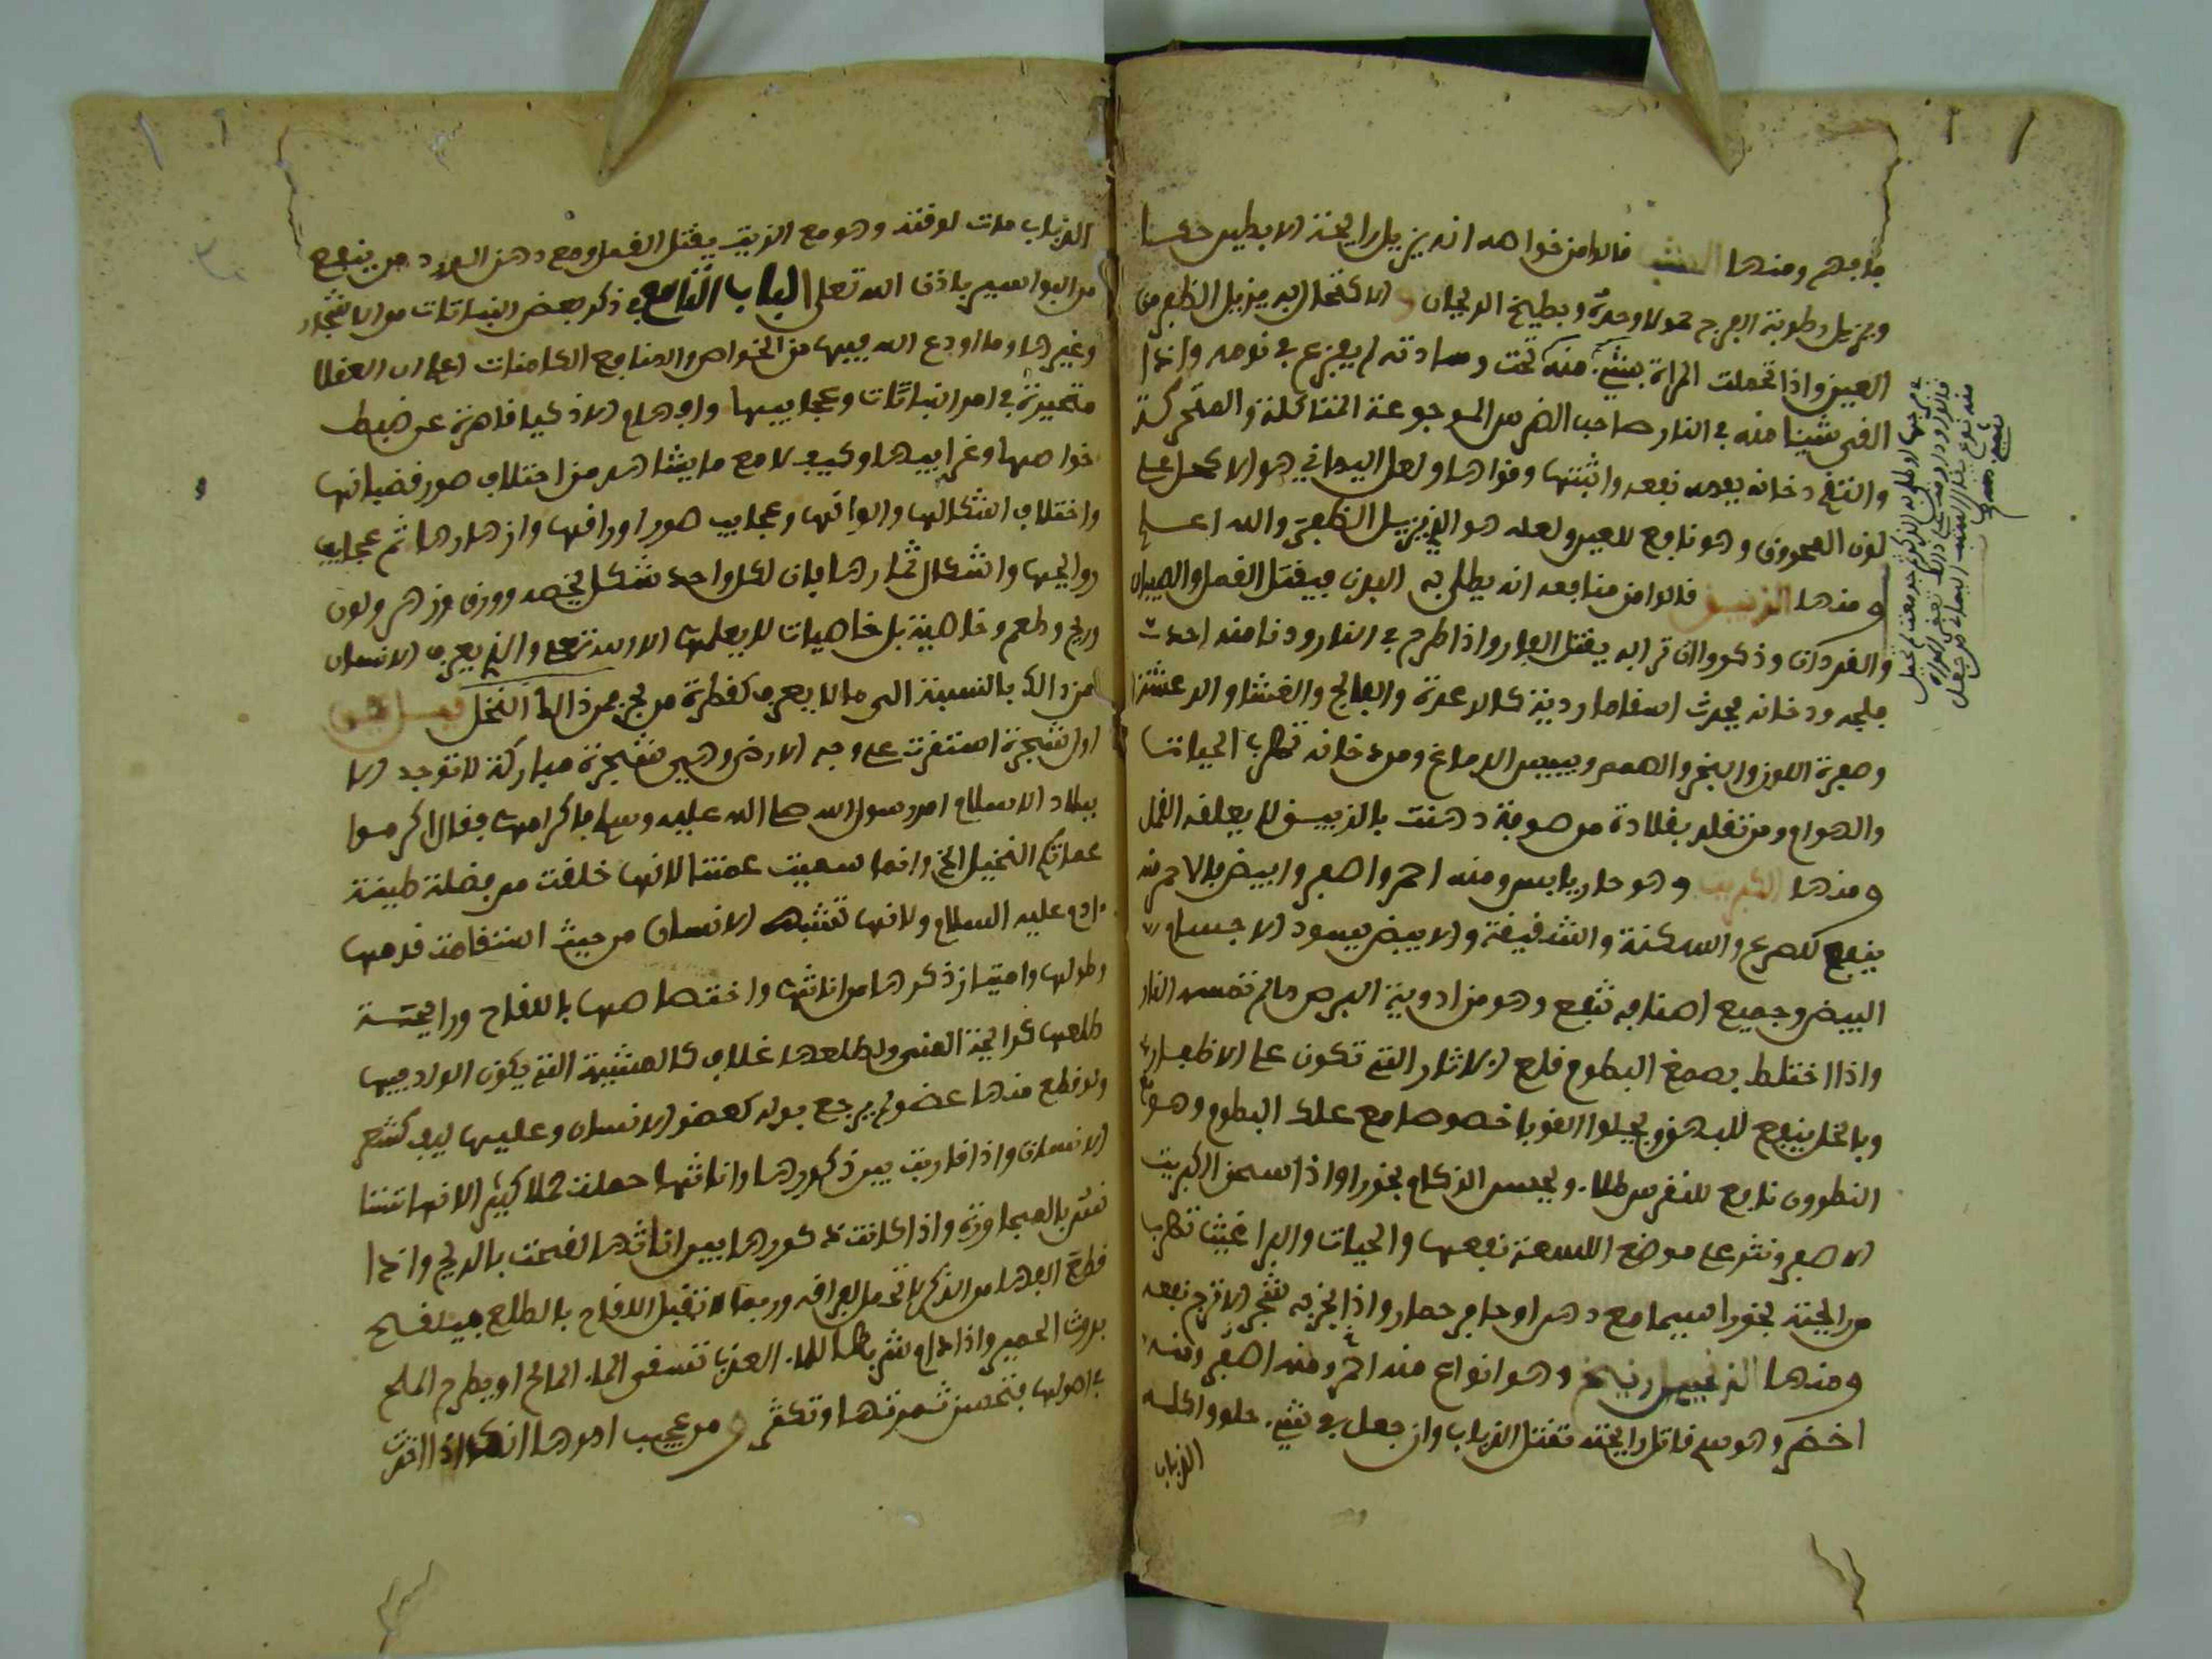 ما بهم ومنها الشب قالوا من خواصه انه يزيل رايحة الابطين حكسا
ويزيل رطوبة الفرج حمولا وحده وبطيخ الريحان والاكتحال به يزيل الظفر من
العين واذا تحملت المراة بشيء منه تحت وسادته لم يفزع في نومه واذا
القى شيئا منه في النار صاحب الضرس الموجوعة المتاكلة والمتحركة
والتقى دخانه بفمه نفعه واثبتها وقواها ولعل اليماني هو الاكحل على
لون المحروق وهو نافع للعين ولعله هو الذي يزيل الظفرة والله اعلم
ومنها الزيبق قالوا من منافعه انه يطلى به البدن فيقتل القمل والصيبان
والقردان وذكروا ان ترابه يقتل الفار واذا طرح في النار ودنا منه احدث
فلجه ودخانه يحدث اسقاما ردية كالرعدة والفالج والغشا والرعشة
وصفرة اللون والبخر والصمم ويبس الدماغ ومن دخانه تهرب الحيات
والهوام ومن تقلد بقلادة من صوفة دهنت بالزيبق لا يعلقه القمل
ومنها الكبريت وهو حار يابس ومنه احمر واصفر وابيض فالاحمر منه
ينفع للصرع والسكتة والشقيقة والابيض يسود الاجسام
البيض وجميع اصنافه تنفع وهو من ادوية البرص مالم تمسه النار
واذا اختلط بصمغ البطم قلع الاثار التي تكون على الاظفار
وبالخل ينفع للبهق ويجلوا القوبا خصوصا مع علك البطم وهو مع
النطرون نافع للنقرس طلاء ويحبس الزكام بخورا واذا سحق الكبريت
الاصفر ونثر على موضع اللسعة نفعها والحيات والبراغيث تهرب
من رايحته بخورا سيما مع دهن او حافر حمار واذا بخر به شجر الاترج نفعه
ومنها الزرنيخ وهو انواع منه احمر ومنه اصفر ومنه
اخضر وهو سم قاتل رايحته تقتل الذباب وان جعل في شيء حلو واكله
الذباب
الذباب مات لوقته وهو مع الزيت يقتل القمل ومع دهن الورد ينفع
من البواسير باذن الله تعلى الباب الثامن في ذكر بعض النباتات من الاشجار
وغيرها وما اودع الله فيها من الخواص والمنافع الكامنات اعلم ان العقلا
متحيرة في امر النباتات وعجايبها وافهام الاذكيا قاصرة عن ضبط
خواصها وغرايبها وكيف لا مع ما يشاهد من اختلاف صور قضبانها
واختلاف اشكالها والوانها وعجايب صور اوراقها وازهارها ثم عجايب
روايحها واشكال ثمارها بان لكل واحد شكل يخصه وورق وزهر ولون
وريح وطعم وخاصية بل خاصيات لا يعلمها الا الله تعلى والذي يعرف الانسان
من ذالك بالنسبة الى ما لا يعرف كقطرة من بحر فمن ذالك النخل
اول شجرة استقرت على وجه الارض وهي شجرة مباركة لا توجد الا
ببلاد الاسلام امر رسول الله صلى الله عليه وسلم باكرامها فقال اكرموا
عماتكم النخيل الخ وانما سميت عمتنا لانها خلقت من فضلة طينة
ءادم عليه السلام ولانها تشبه الانسان من حيث استقامة قدمها
وطولها وامتياز ذكرها من اناثها واختصاصها باللقاح ورايحة
طلعها كرايحة المني ولطلعها غلاف كالمشيمة التي يكون الولد فيها
ولو قطع منها عضو لم يرجع بدله كعضو الانسان وعليها ليف كشعر
الانسان واذا قاربت بين ذكورها واناثها حملت حملا كثيرا لانها تستا
نس بالمجاورة واذا كانت ذكورها بين اناثها لقحت بالريح واذا
قطع الفها من الذكر لا تحمل لفراقه وربما لا تقبل اللقاح بالطلع فيلقح
بروث الحمير واذا دام شربها للماء العذب تسقى الماء المالح او يطرح الملح
في اصولها فتحسن ثمرتها وتكثر ومن عجيب امرها انه اذا اخذت